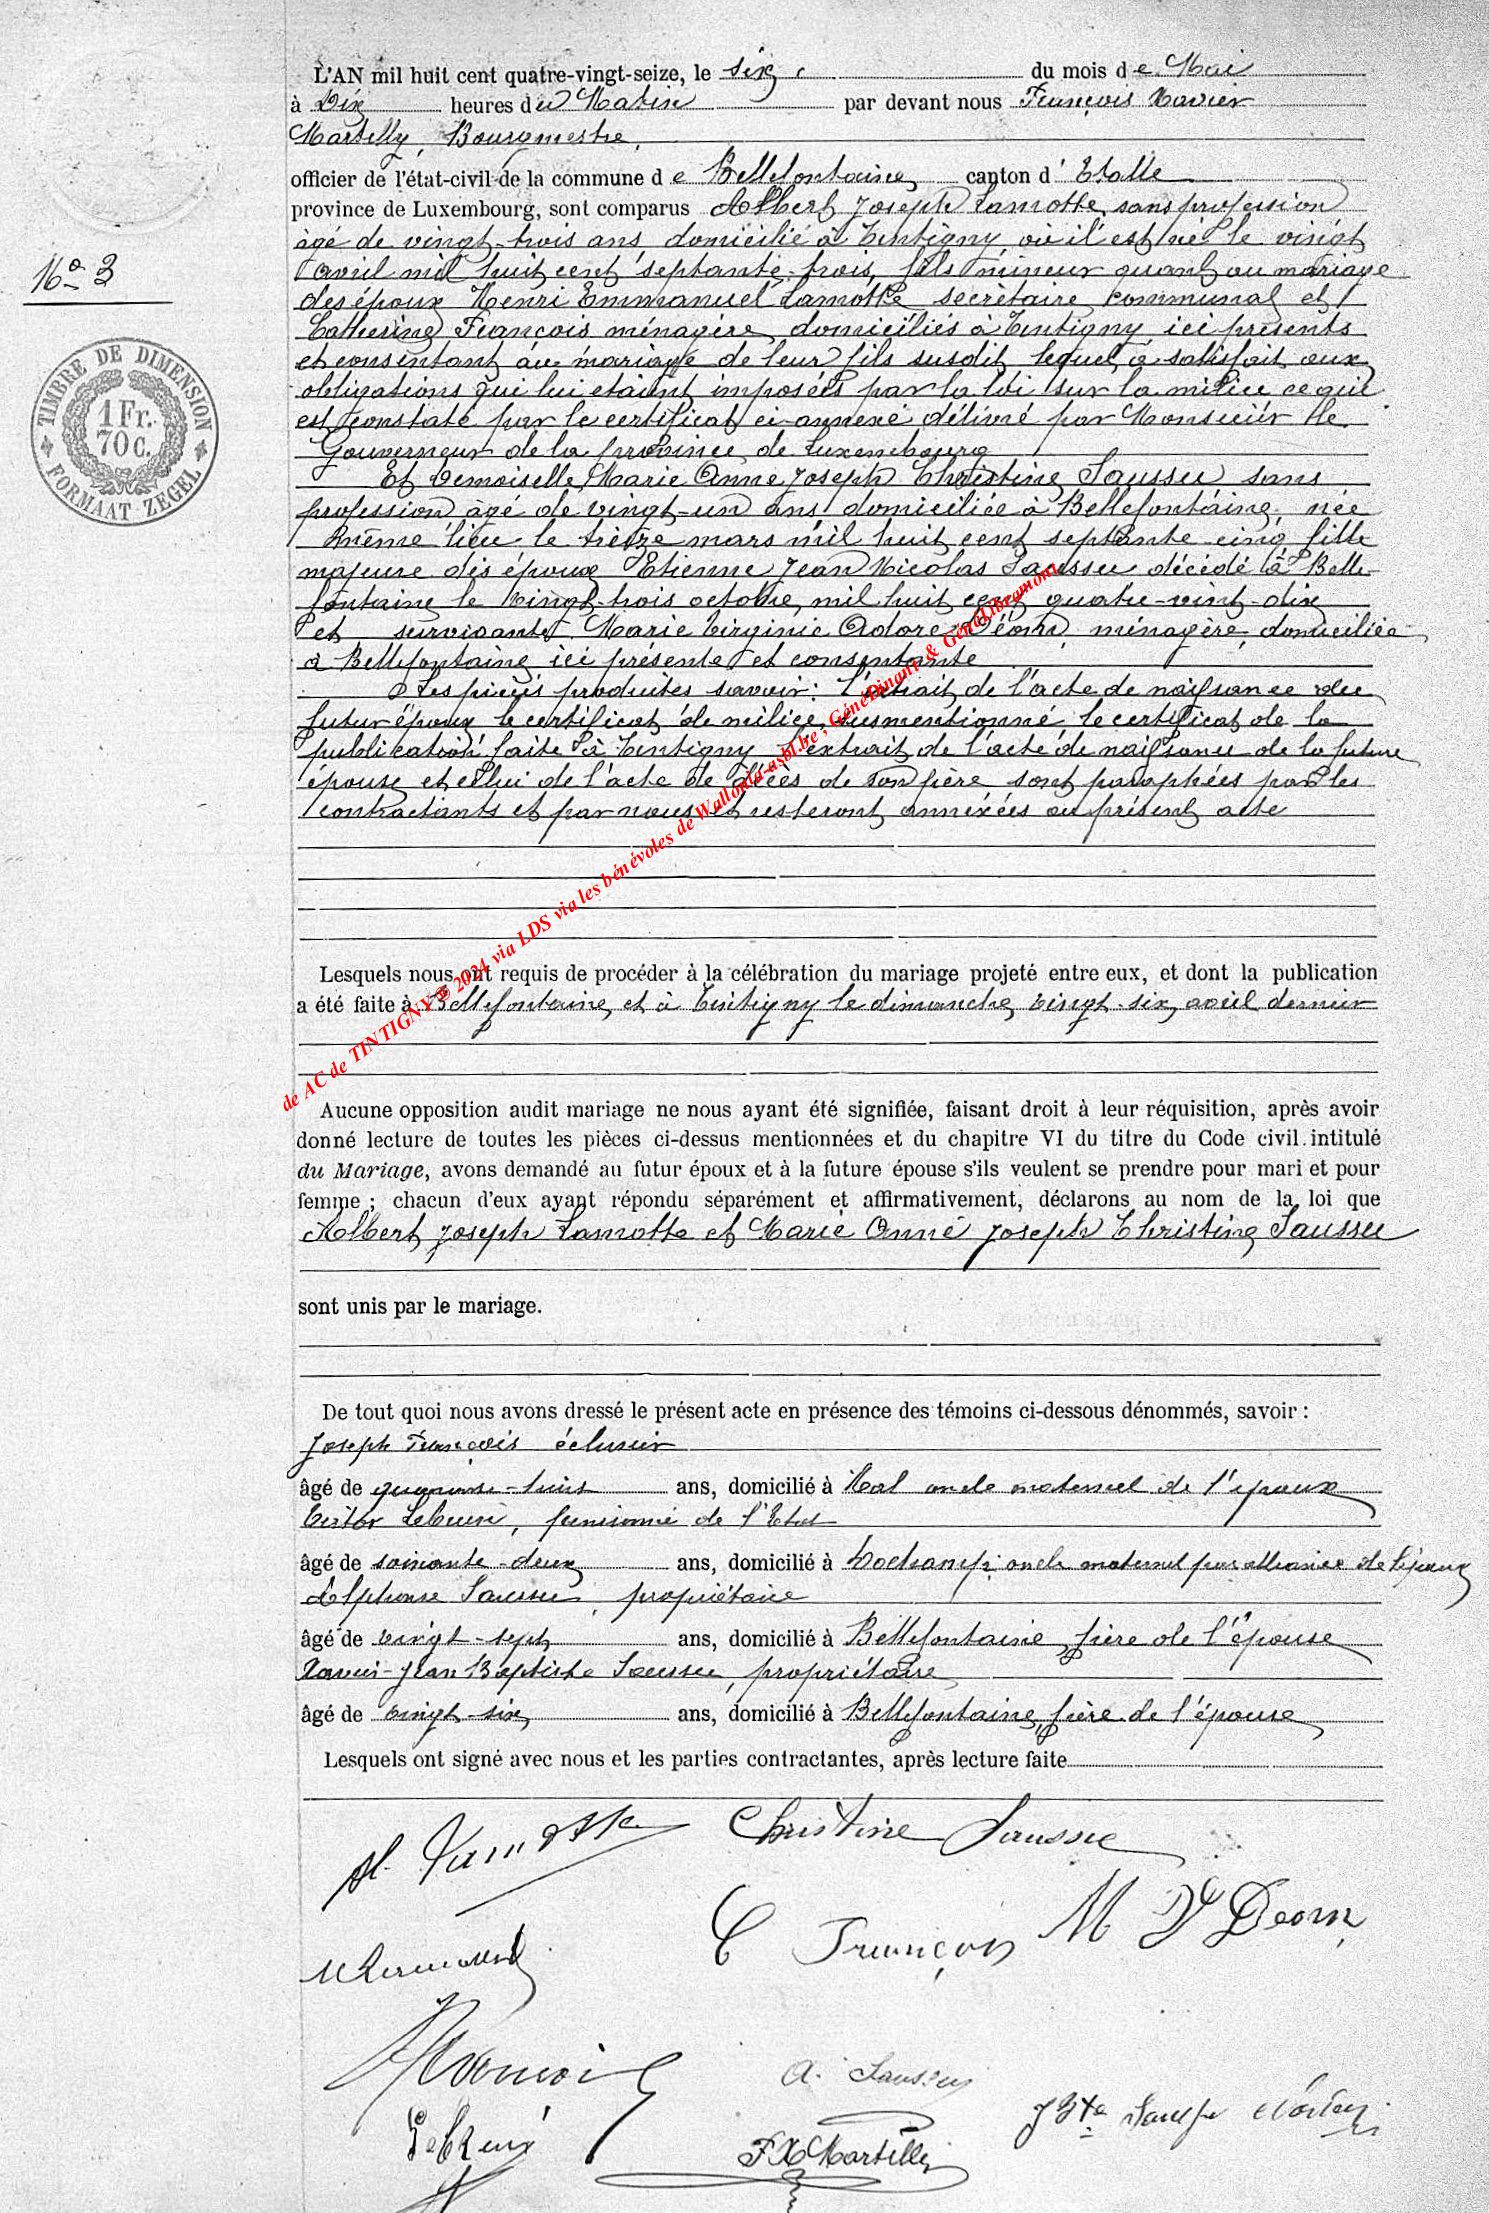 L'AN mil huit cent quatre-vingt-seize, le six du mois de Mai
à Dix heures du Matin par devant nous François Xavier
Martilly, Bourgmestre,
officier de l'état-civil de la commune de Bellefontaine canton d'Etalle
province de Luxembourg, sont comparus Albert Joseph Lamotte, sans profession
âgé de vingt-trois ans, domicilié à Tintigny où il est né le vingt
avril mil huit cent septante-trois, fils mineur quant au mariage
des époux Henri Emmanuel Lamotte secrétaire communal et
Catherine François ménagère domiciliés à Tintigny ici présents
et consentant au mariage de leur fils susdit lequel a satisfait aux
obligations qui lui etaient imposées par la loi sur la milice ce qui
est constaté par le certificat ci-annexé délivré par Monsieur le
Gouverneur de la province de Luxembourg
Et Demoiselle Marie Anne Joseph Christine Saussu sans
profession âgé de vingt-un ans domiciliée à Bellefontaine née
même lieu le treize mars mil huit cent septante-cinq fille
majeure des époux Etienne Jean Nicolas Saussu décédé à Belle-
fontaine le vingt-trois octobre mil huit cent quatre-vint-dix
et survivante Marie Virginie Adore Déom ménagère domiciliée
à Bellefontaine ici présente et consentante
Les pièces produites savoir: l'extrait de l'acte de naissance du
futur époux le certificat de milice susmentionné le certificat de la
publication faite à Tintigny l'extrait de l'acte de naissance de la future
épouse et celui de l'acte de décès de son père sont paraphées par les
contractants et par nous et resteront annexées au présent acte
N° 3
TIMBRE DE DIMENSION
1 Fr.
70 C.
FORMAAT ZEGEL
de AC de TINTIGNY © 2024 via LDS via les bénévoles de Wallonia-asbl.be ; GénéDinant & GénéLibramont
Lesquels nous ont requis de procéder à la célébration du mariage projeté entre eux, et dont la publication
a été faite à Bellefontaine et à Tintigny le dimanche vingt-six avril dernier
Aucune opposition audit mariage ne nous ayant été signifiée, faisant droit à leur réquisition, après avoir
donné lecture de toutes les pièces ci-dessus mentionnées et du chapitre VI du titre du Code civil intitulé
du Mariage, avons demandé au futur époux et à la future épouse s'ils veulent se prendre pour mari et pour
femme ; chacun d'eux ayant répondu séparément et affirmativement, déclarons au nom de la loi que
Albert Joseph Lamotte et Marie Anne Joseph Christine Saussu
sont unis par le mariage.
De tout quoi nous avons dressé le présent acte en présence des témoins ci-dessous dénommés, savoir :
Joseph François éclusier
âgé de quarante-huit ans, domicilié à Hal oncle maternel de l'époux
Victor Lebrun, pensionné de l'Etat
âgé de soixante-deux ans, domicilié à oncle maternel par alliance de l'époux
Alphonse Saussu, propriétaire
âgé de vingt-sept ans, domicilié à Bellefontaine, frère de l'épouse
Xavier-Jean Baptiste Saussu, propriétaire
âgé de vingt-six ans, domicilié à Bellefontaine, frère de l'épouse
Lesquels ont signé avec nous et les parties contractantes, après lecture faite
Al. Lamotte Christine Saussu
C François M V Deom
A. Saussu
FX Martilly